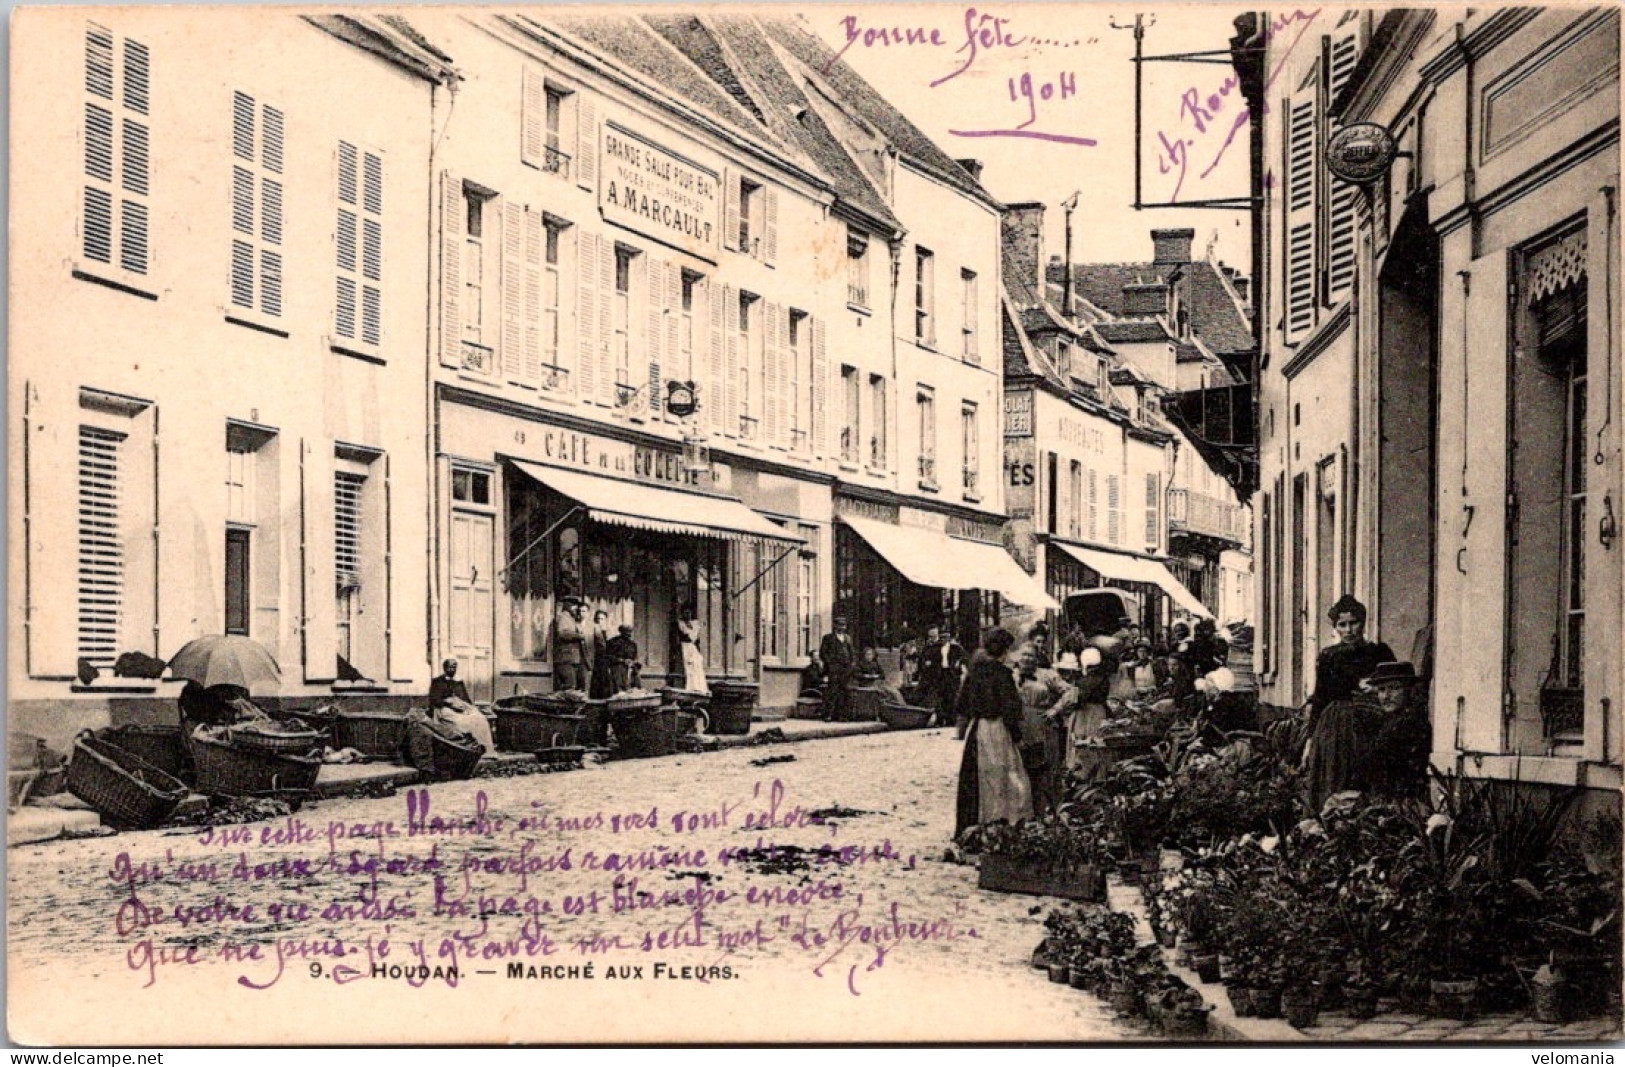 Bonne fête ......
1904
GRANDE SALLE POUR BAL
NOCES ET CONFERENCES
A MARCAULT
CAFE DE LA COMETE
NOUVEAUTÉS
Sur cette page blanche, où mes vers vont éclore,
Qu'un doux regard parfois ramène votre cœur,
De votre vie aussi la page est blanche encore,
Que ne puis-je y graver un seul mot "Le Bonheur".
9. — HOUDAN. — MARCHÉ AUX FLEURS.
velomania